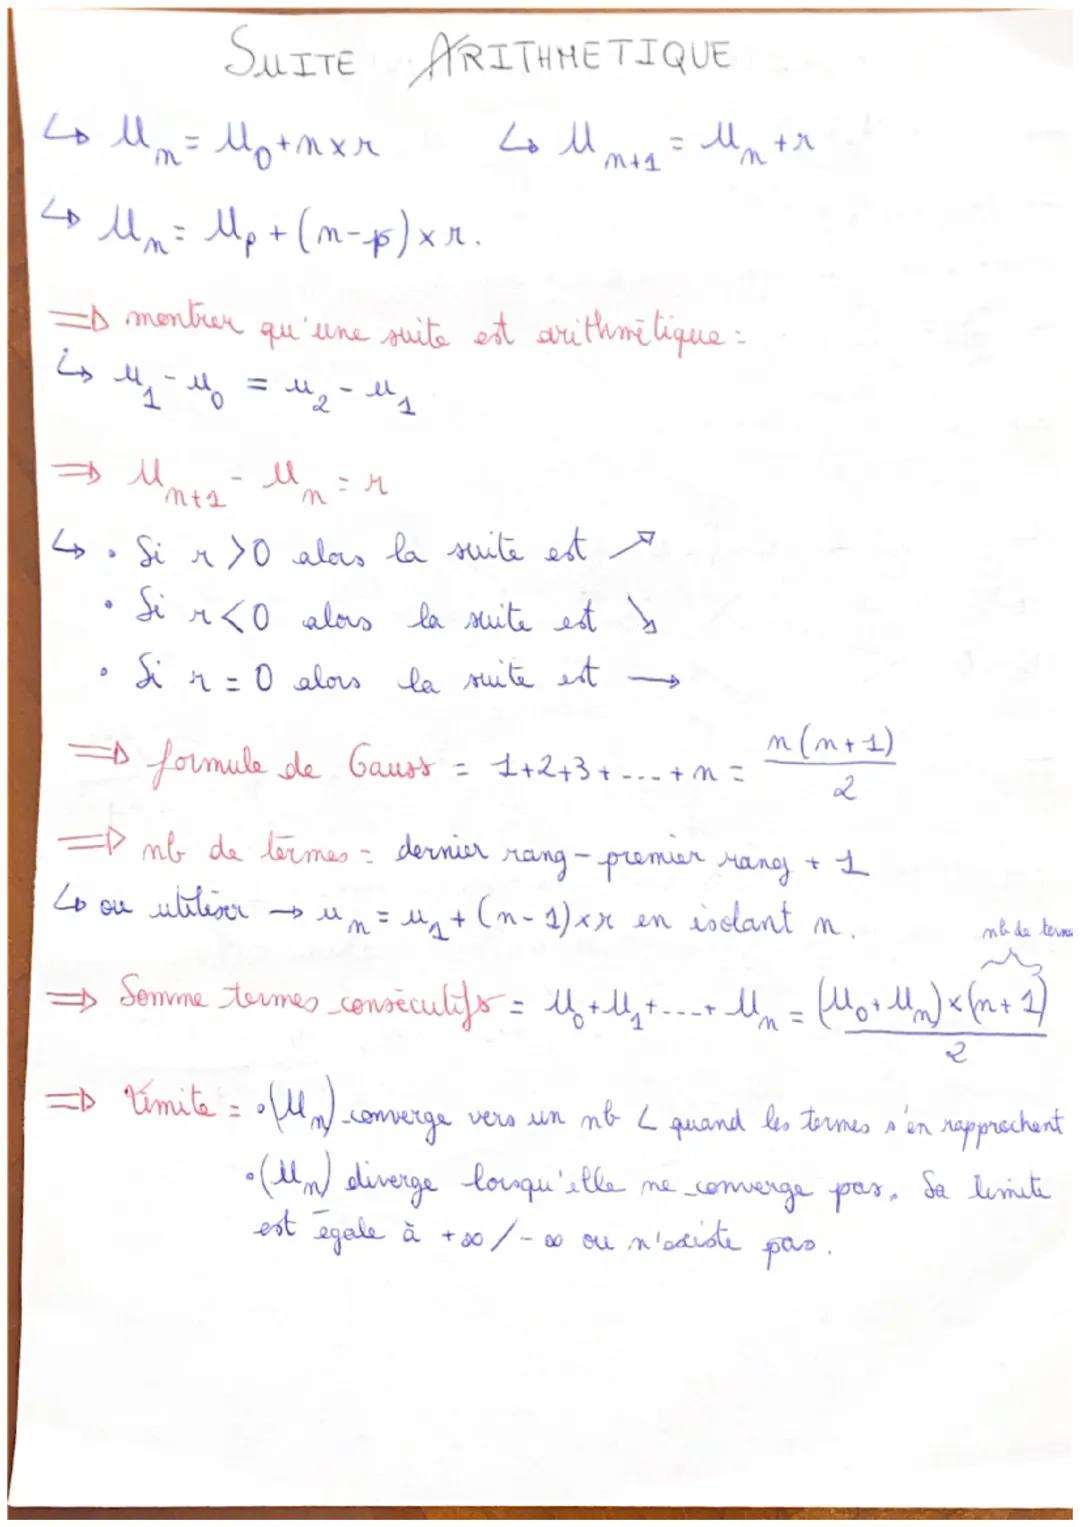 SUITE ARITHMETIQUE
↳ Un = U0 + n×r ↳ Un+1 = Un + r
↳ Un = Up + (n-p)×r.
⇒ montrer qu'une suite est arithmétique :
↳ u1 - u0 = u2 - u1
⇒ Un+1 - Un = r
↳ • Si r > 0 alors la suite est ↗
• Si r < 0 alors la suite est ↘
• Si r = 0 alors la suite est →
⇒ formule de Gauss = 1+2+3+....+n = n(n+1)/2
⇒ nb de termes = dernier rang - premier rang + 1
↳ ou utiliser → un = u1 + (n-1)×r en isolant n.
nb de terme
⇒ Somme termes consécutifs = U0+U1+....+Un = (U0+Un)×(n+1)/2
⇒ limite = • (Un) converge vers un nb L quand les termes s'en rapprochent
• (Un) diverge lorsqu'elle ne converge pas. Sa limite
est égale à +∞/-∞ ou n'existe pas.